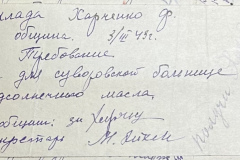 клада Харченко Ф.
община. 3/III 43 г.
Требование
для суворовской больнице
дсолнечного масла
общины: за
кретарь М.